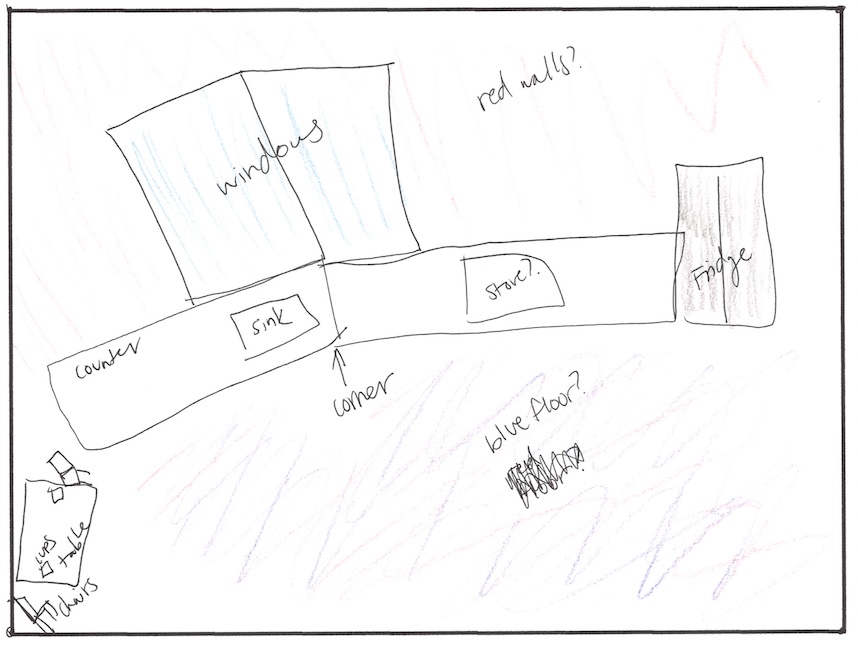 red walls?
windows
Fridge
stove?
sink
counter
corner
blue floor?
cups
table
chairs